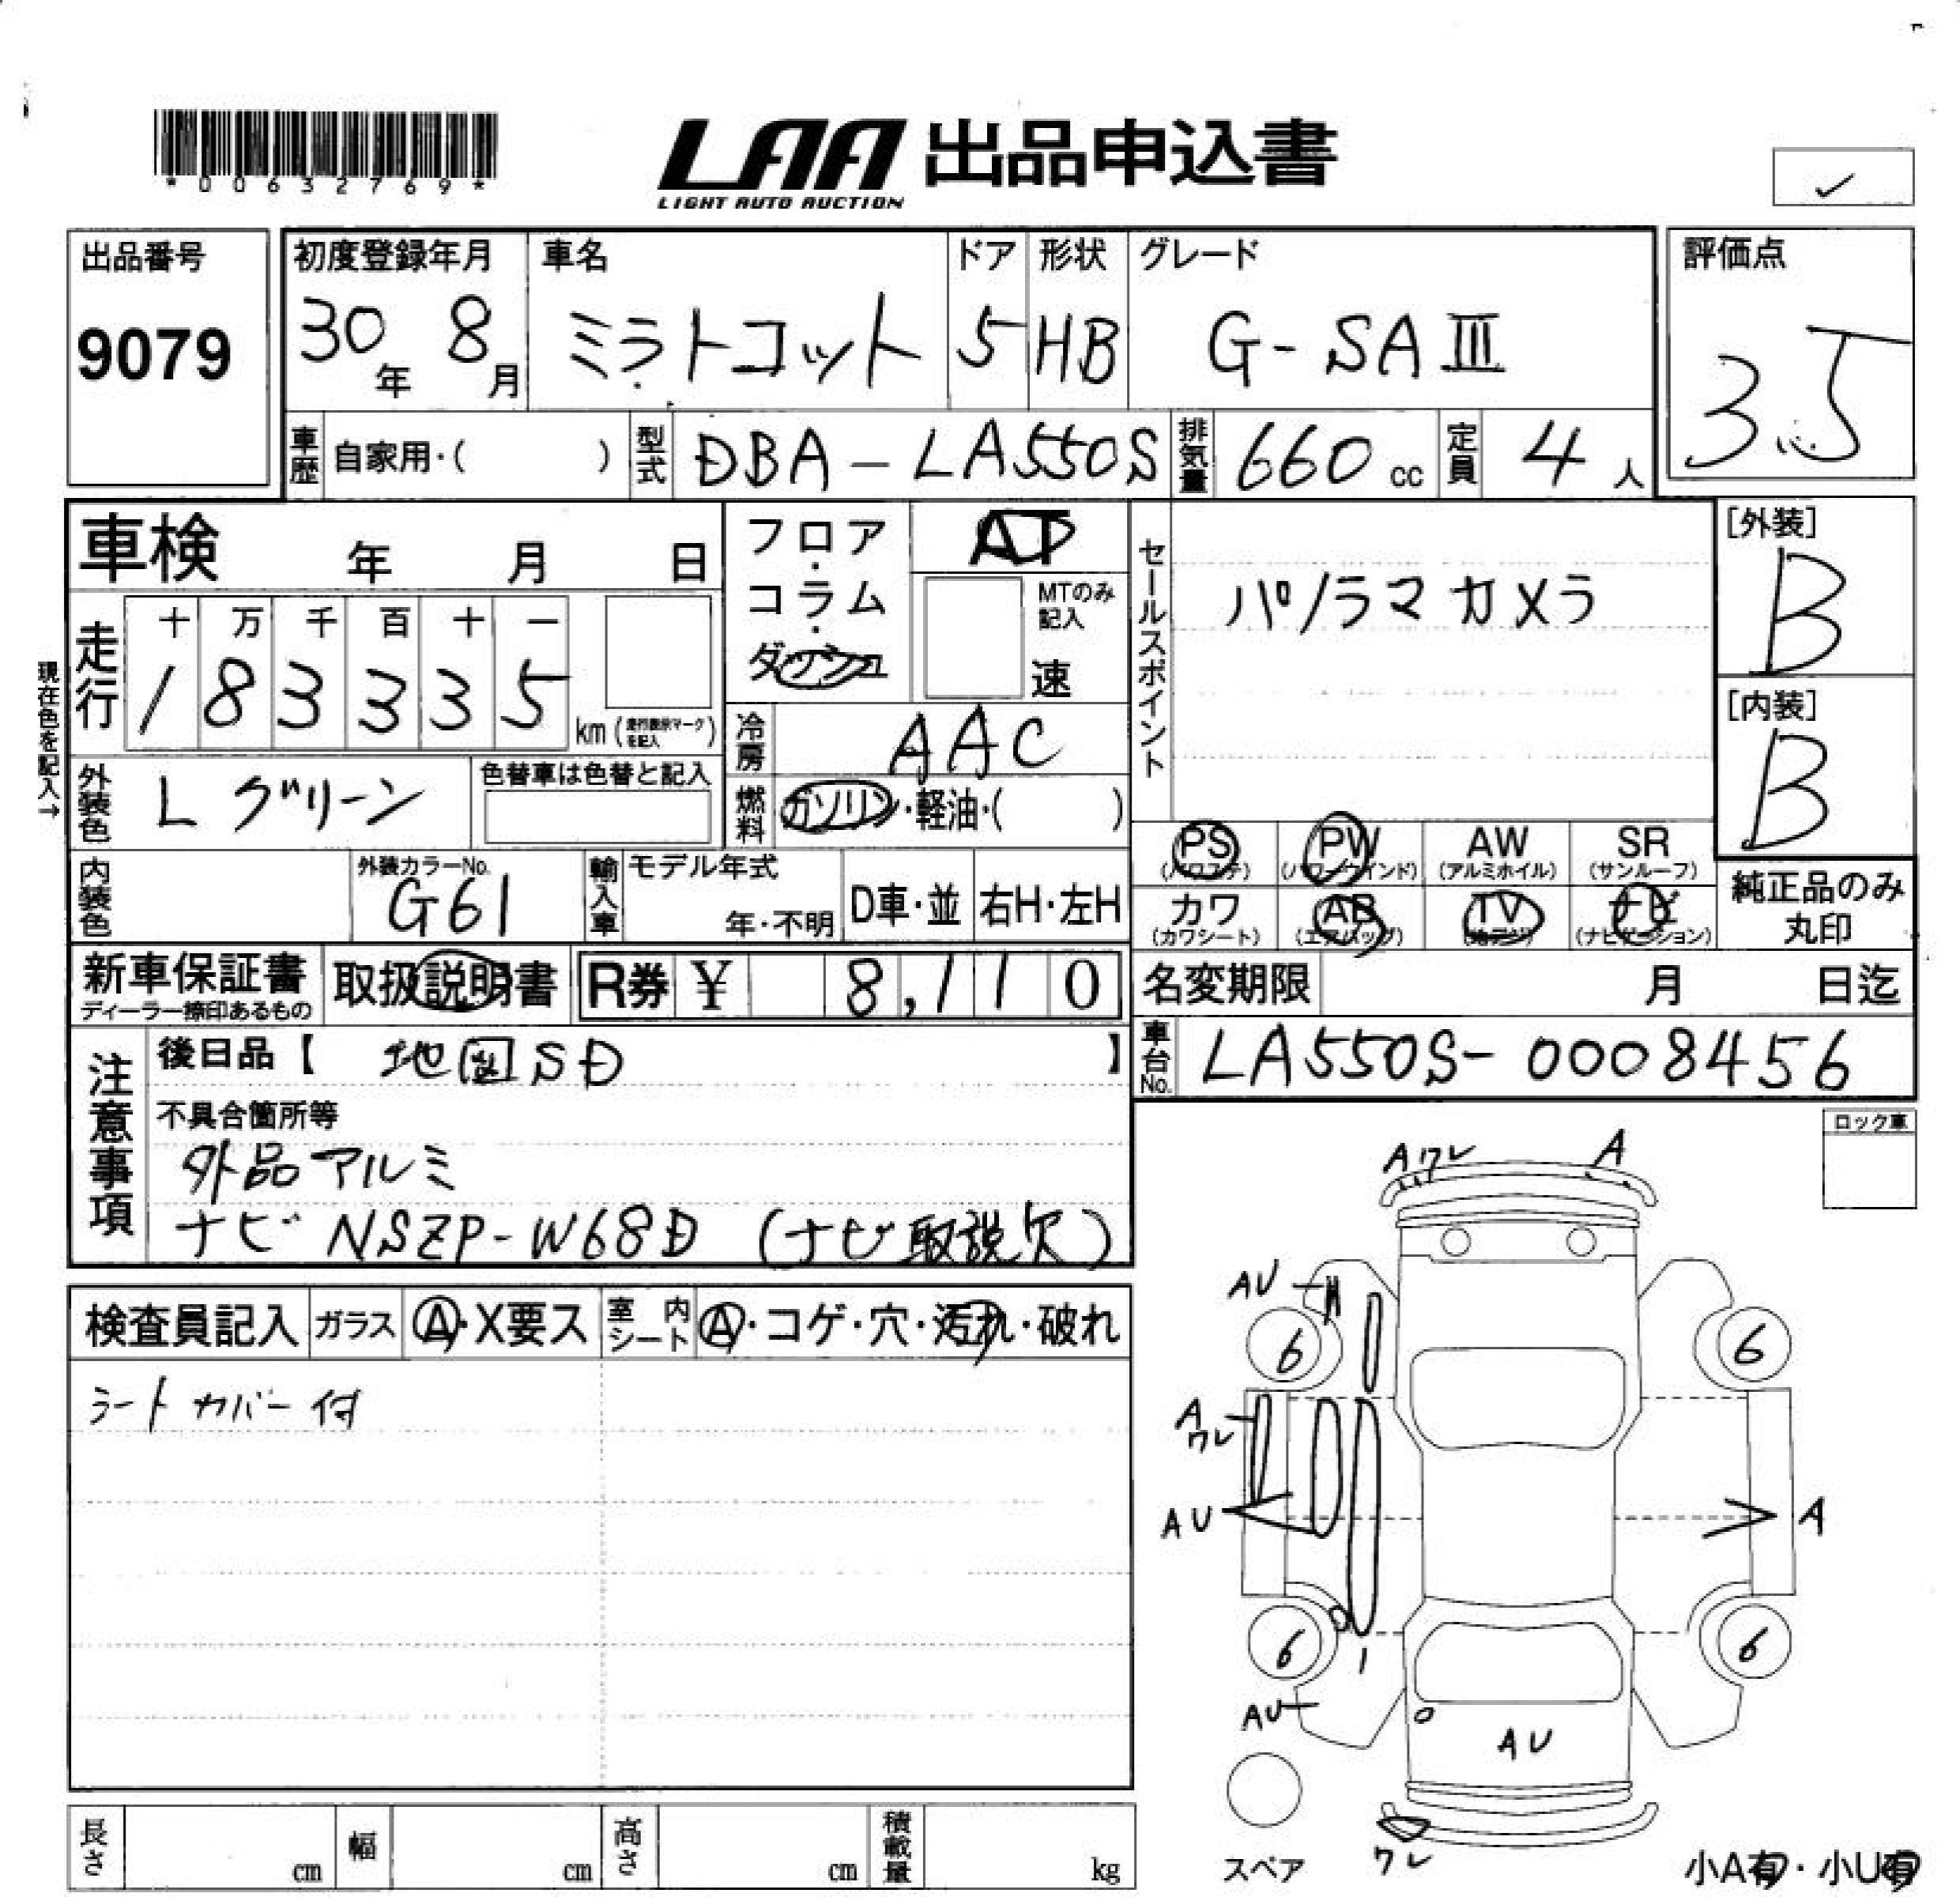 *00632769*
LAA 出品申込書
LIGHT AUTO AUCTION
✓
出品番号
9079
初度登録年月
30年 8月
車名
ミラトコット
ドア
5
形状
HB
グレード
G-SAⅢ
評価点
3.5
車歴 自家用・( )
型式 DBA-LA550S
排気量 660 cc
定員 4 人
車検 年 月 日
フロア・コラム・ダッシュ
AT
MTのみ記入
速
セールスポイント
パノラマカメラ
[外装]
B
[内装]
B
現在色を記入→
走行
十 万 千 百 十 一
1 8 3 3 3 5
km (走行表示マークを記入)
冷房 AAC
外装色 Lグリーン
色替車は色替と記入
燃料 ガソリン・軽油・( )
PS (パワステ)
PW (パワーウインド)
AW (アルミホイル)
SR (サンルーフ)
内装色
外装カラーNo.
G61
輸入車
モデル年式
年・不明
D車・並
右H・左H
カワ (カワシート)
AB (エアバッグ)
TV
ナビ (ナビゲーション)
純正品のみ丸印
新車保証書
ディーラー捺印あるもの
取扱説明書
R券 ¥ 8,110
名変期限 月 日迄
車台No. LA550S-0008456
注意事項
後日品【 地図SD 】
不具合箇所等
外品アルミ
ナビ NSZP-W68D (ナビ取説欠)
ロック車
検査員記入
ガラス
A・X要ス
室内シート
A・コゲ・穴・汚れ・破れ
シートカバー付
Aワレ
A
AU
6
6
A
ワレ
AU
A
6
1
6
AU
AU
スペア
ワレ
小A有・小U有
長さ cm
幅 cm
高さ cm
積載量 kg